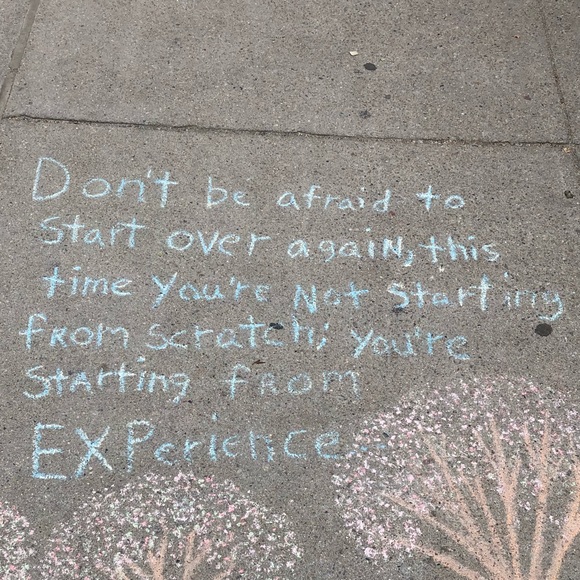 Don't be afraid to
Start over again, this
time you're Not Starting
FROM Scratch; you're
Starting from
EXPerience